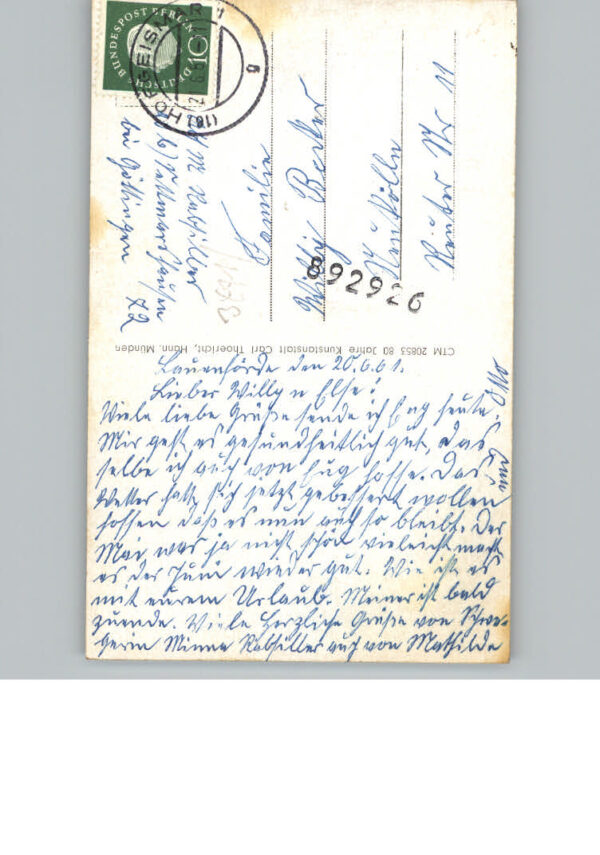 DEUTSCHE BUNDESPOST BERLIN
10
(16) HOFGEISMAR 1
g
Familie
Willy Becker
Neukölln
Reuter Str 11
892926
bei Göttingen 72
CTM 20855 80 Jahre Kunstanstalt Carl Thoericht, Hann. Münden
Lauenförde den 20.6.61.
Lieber Willy u Else!
Viele liebe Grüße sende ich Eug heute.
Mir geht es gesundheitlich gut, das
selbe ich auch von Eug hoffe. Das
Wetter hat sich jetzt gebessert wollen
hoffen daß es nun auch so bleibt. Der
Mai war ja nicht schön vieleicht macht
es der Juni wieder gut. Wie ist es
mit eurem Urlaub. Meiner ist bald
zuende. Viele herzliche Grüße von Schwä-
gerin Minna Rabfiller auch von Mathilde